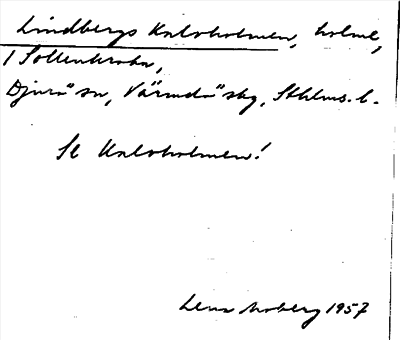 Lindbergs Kalvholmen, holme,
i Sollenkroka,
Djurö sn, Värmdö skg, Sthlms. l.
Se Kalvholmen!
Lena Moberg 1957